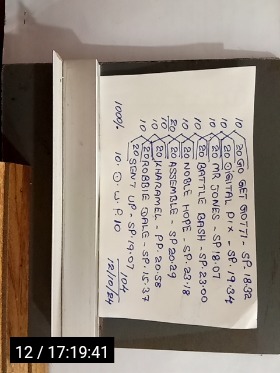 20 GO GET GOTTI - SP. 18.32
20 DIGITAL DIX - SP. 19.34
20 MR JONES - SP. 18.07
20 BATTLE BASH - SP. 23.00
20 NOBLE HOPE - SP. 23.18
20 ASSEMBLE - SP 20.29
20 KHARAMEL - PP. 20.58
20 ROBBIE DALE - SP. 15.37
20 SENT UP - SP. 19.07
10 10 10 10 10 10 20 10 10 10
1000/1 10. W. P. 10
104
12/10/24
12 / 17:19:41